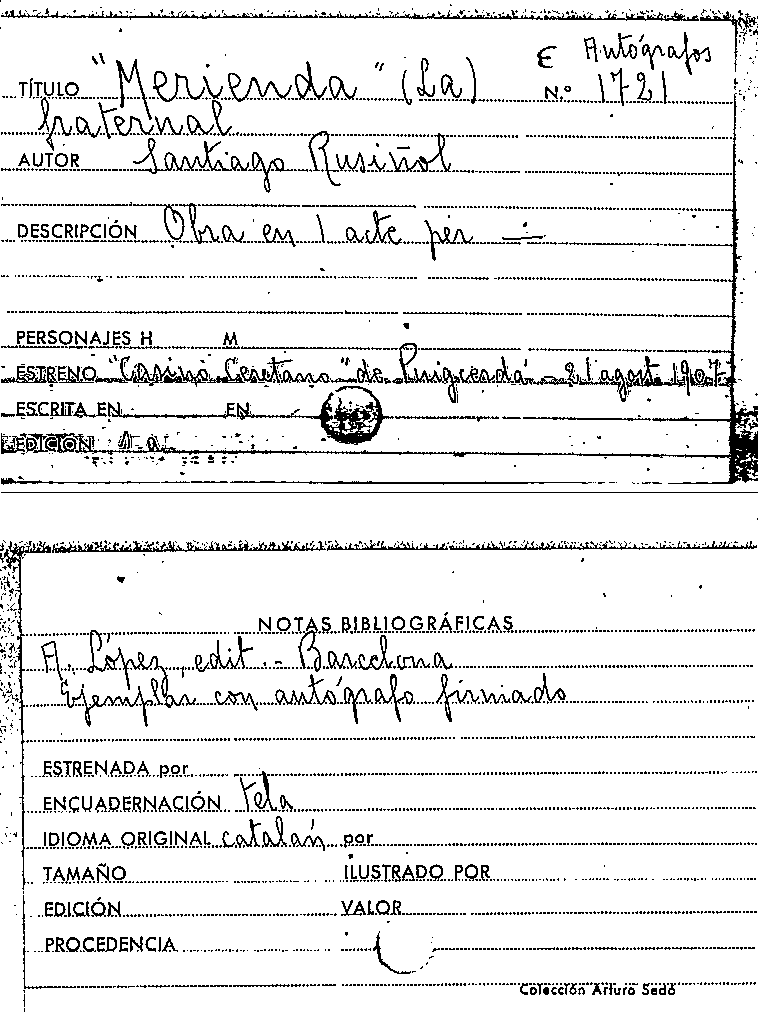 E Autógrafos
TÍTULO "Merienda" (La) N.º 1721
fraternal
AUTOR Santiago Rusiñol
DESCRIPCIÓN Obra en 1 acte per —
PERSONAJES H M
ESTRENO "Casino Ceretano" de Puigcerdá - 21 agost 1907
ESCRITA EN EN
EDICIÓN 1.a
NOTAS BIBLIOGRÁFICAS
A. López, edit. - Barcelona
Ejemplar con autógrafo firmado
ESTRENADA por
ENCUADERNACIÓN tela
IDIOMA ORIGINAL catalán por
TAMAÑO ILUSTRADO POR
EDICIÓN VALOR
PROCEDENCIA
Colección Arturo Sedó